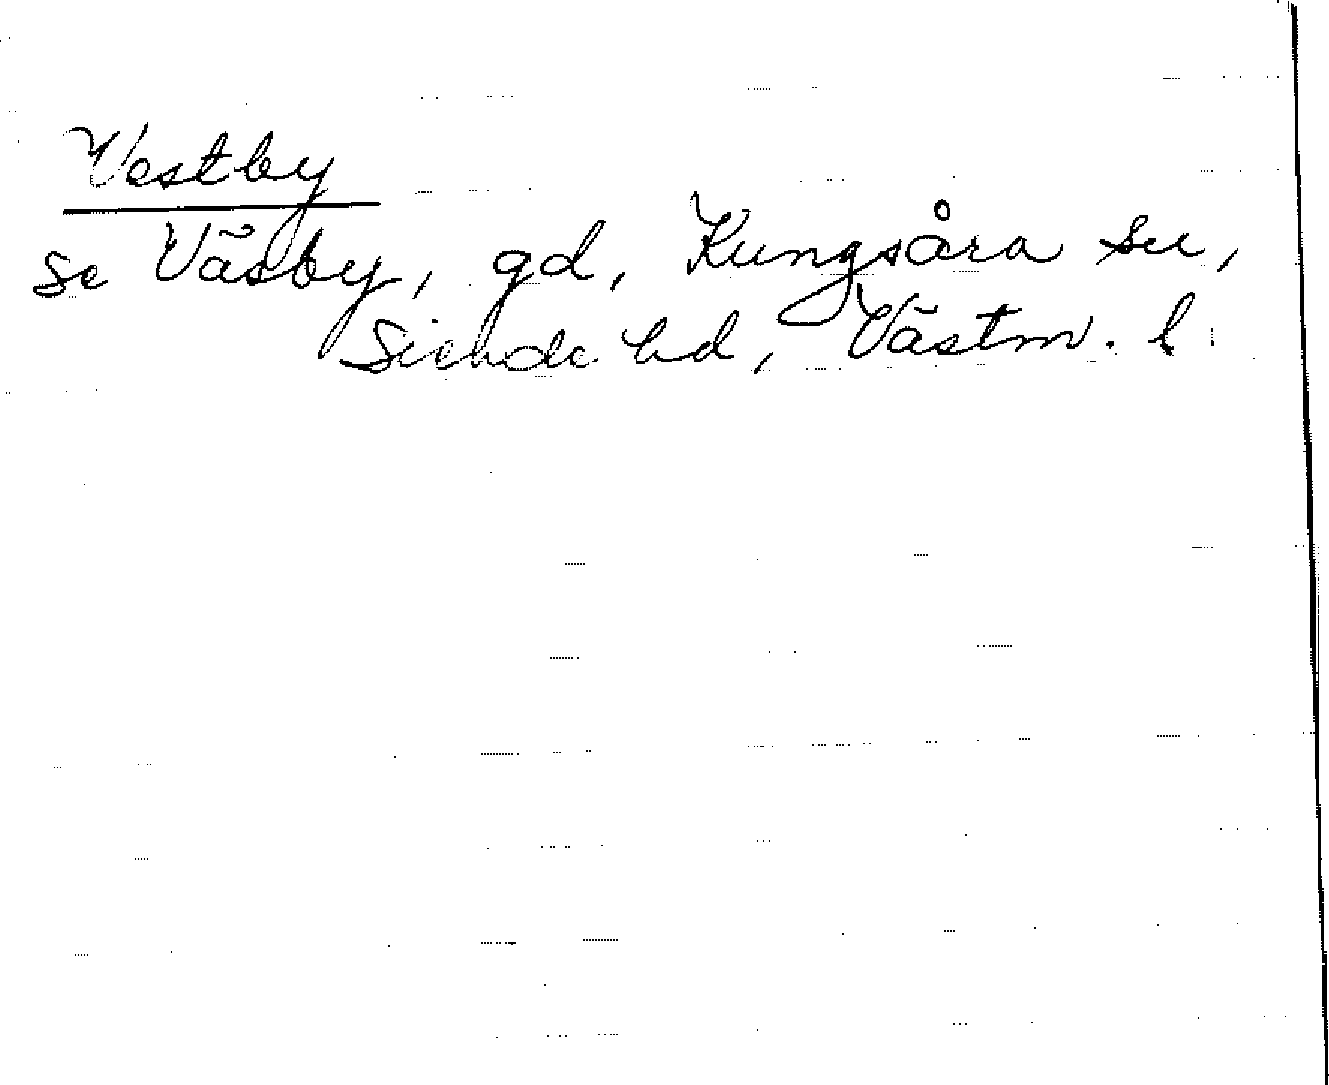 Vestby
se Väsby, gd, Kungsåra sn,
Siende hd, Västm. l.